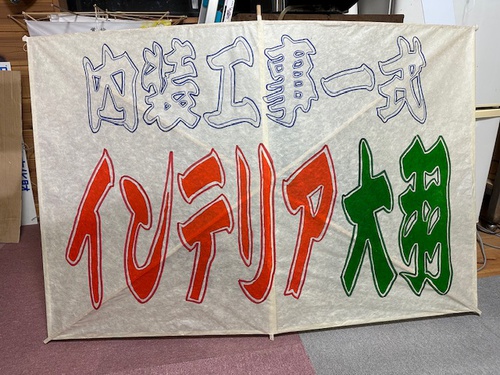 内装工事一式
インテリア大羽